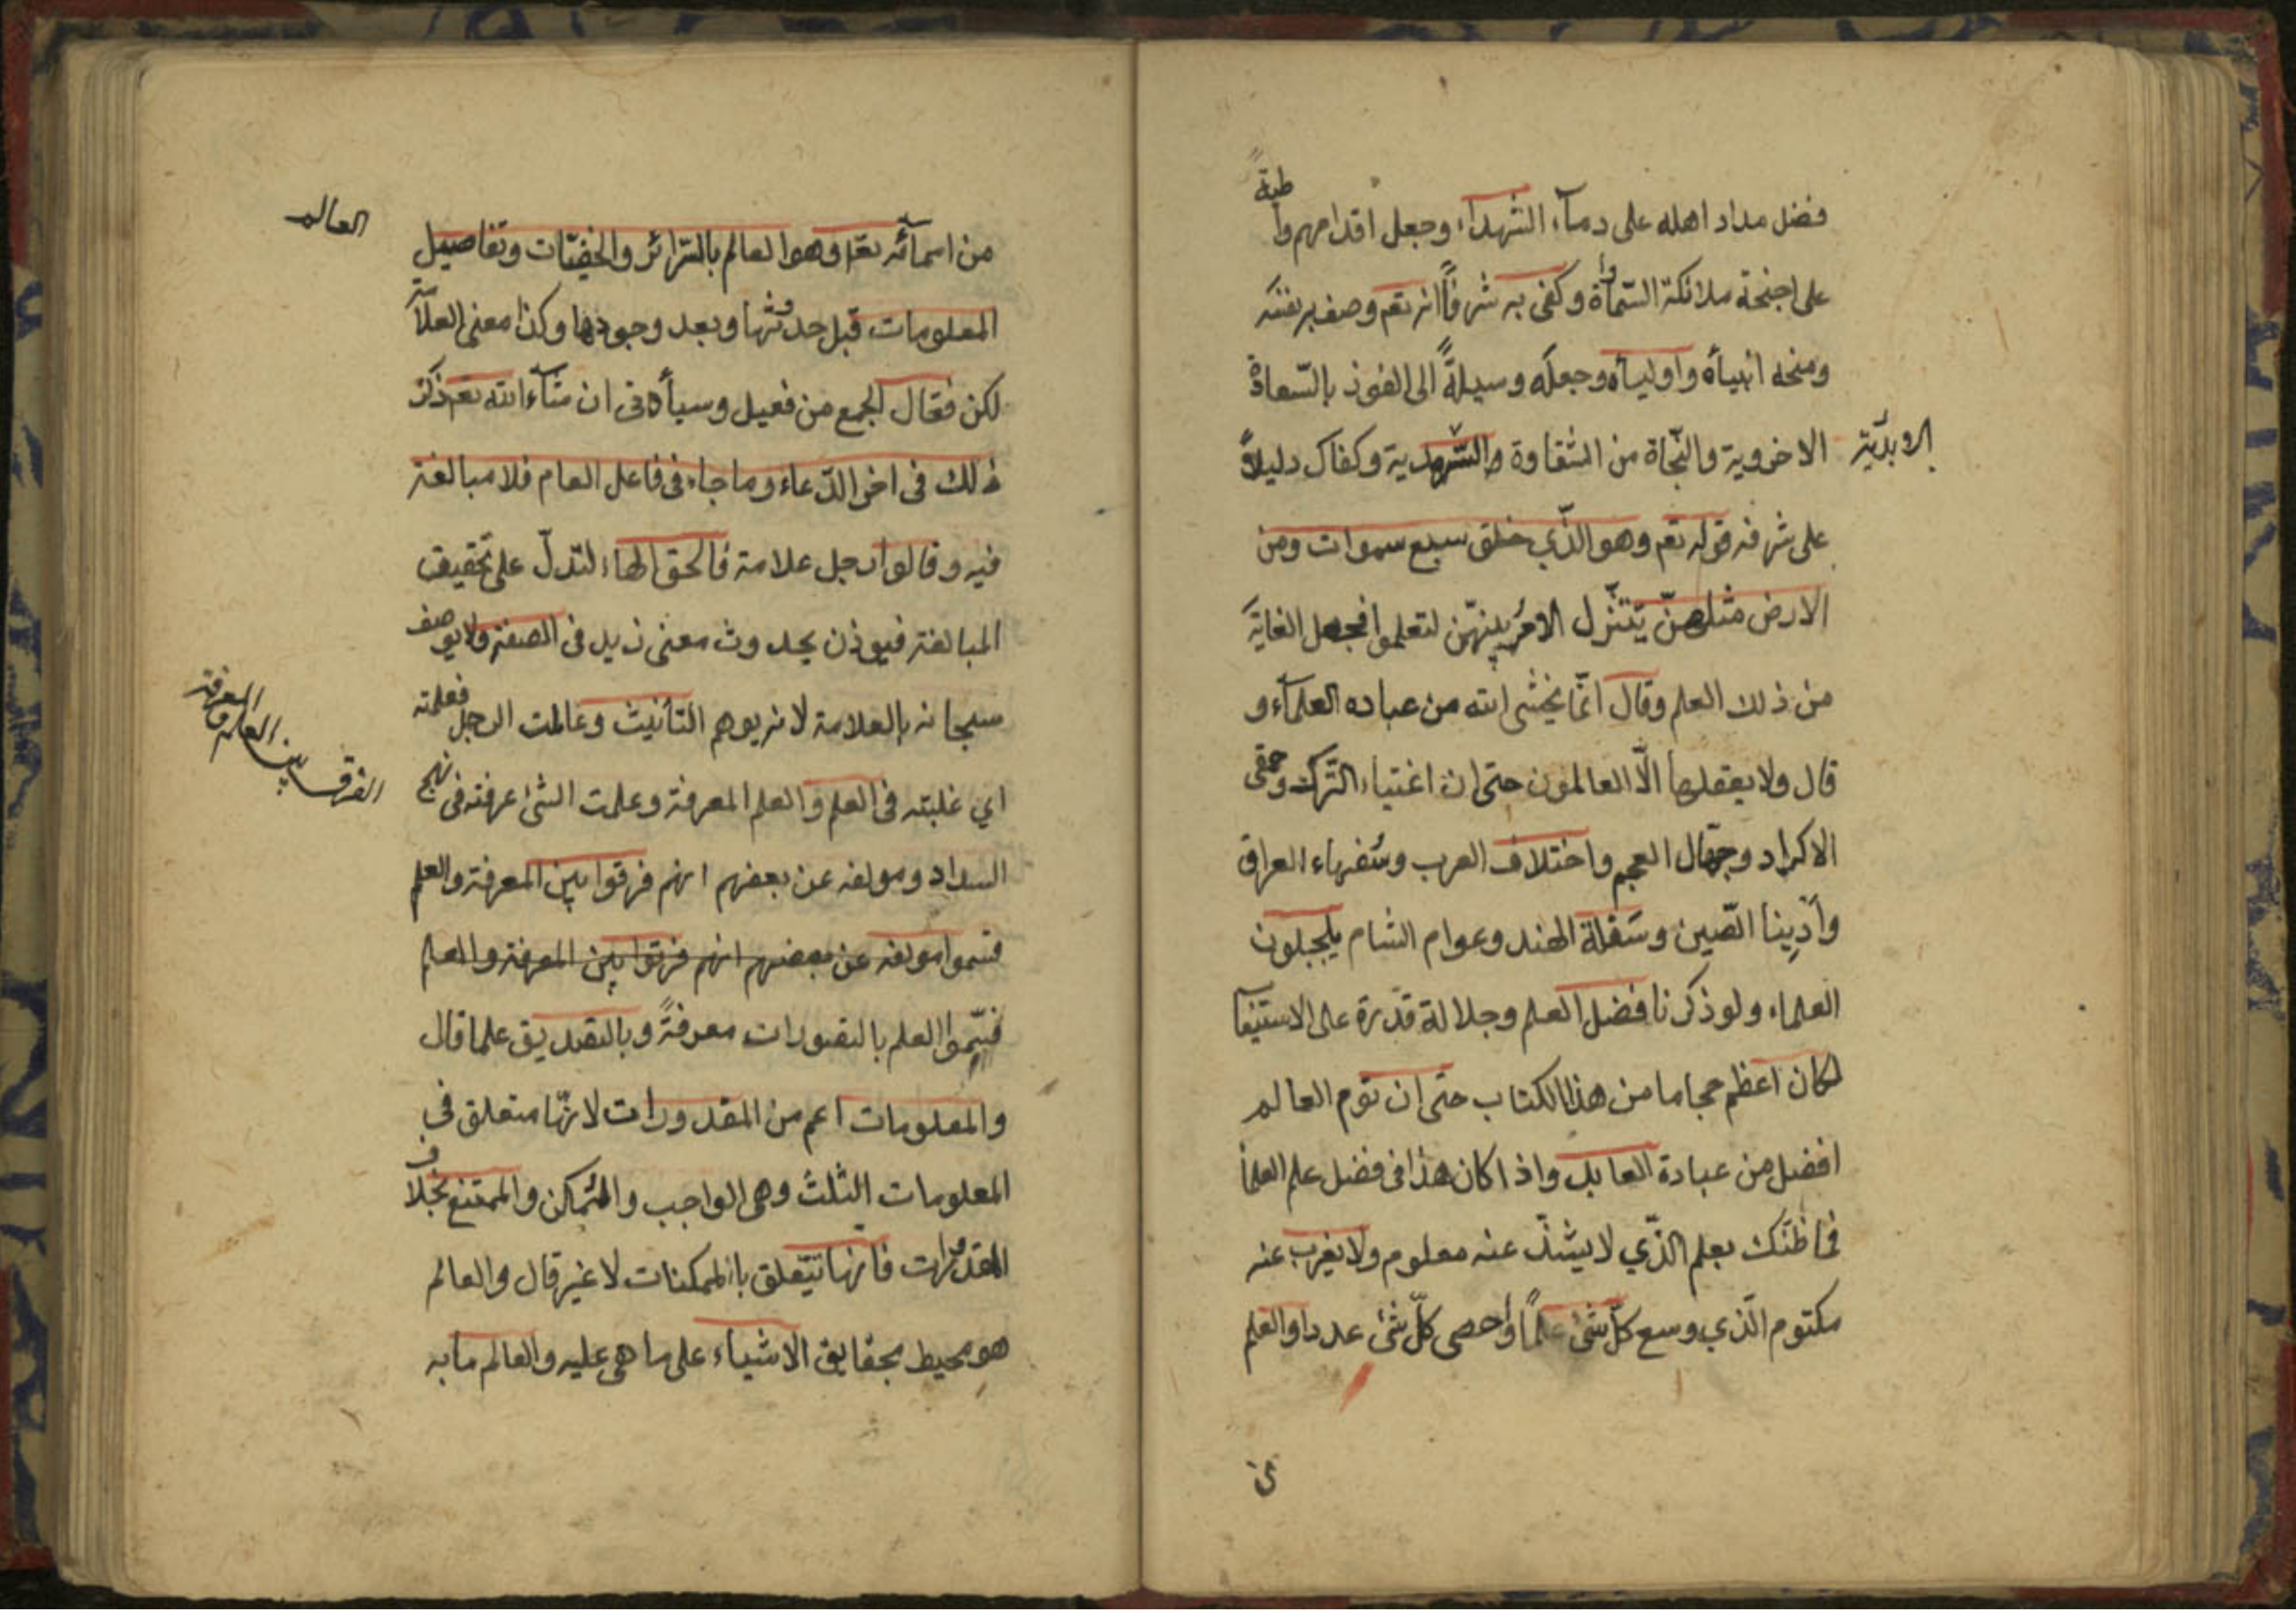 فضل مداد اهله على دمآء الشهداء وجعل اقدامهم واطئة
على اجنحة ملائكة السّماوات وكفى به شرفاً انه تعم وصف به نفسه
ومنحه انبيآه واوليآه وجعله وسيلةً الى الفوز بالسّعادة
الاخروية والنّجاة من الشقاوة والسّرمدية وكفاك دليلاً
الابديّة
على شرفه قوله تعم وهو الذّي خلق سبع سموات ومن
الارض مثلهنّ يتنزّل الامر بينهنّ لتعلموا فجعل الغاية
من ذلك العلم وقال انّما يخشى الله من عباده العلمآء و
قال ولا يعقلها الّا العالمون حتى ان اغتياء التّرك وحمقى
الاكراد وجهّال العجم واختلاف العرب وسُفهاء العراق
وأدينا الصّين وسَفلة الهند وعوام الشام يلجبلون
العلماء ولو ذكرنا فضل العلم وجلالة قدره على الاستيفآ
لكان اعظم حجاما من هذا الكتاب حتى ان نوم العالم
افضل من عبادة العابد واذا كان هذا فى فضل علم العلمآ
فما ظنّك بعلم الذّي لا يشذّ عنه معلوم ولا يغرب عنه
مكتوم الّذي وسع كلّ شئ علماً وأحصى كلّ شئ عددا والعلم
ى
من اسمآئه تعا وهو العالم بالسّرائر والخفيّات وتفاصيل
العالم
المعلومات قبل حدوثها وبعد وجودها وكذا معنى العلّامة
لكن فعّال لجمع من فعيل وسيأتى ان شآء الله تعم ذكر
ذلك فى اخر الدّعاء وما جاء فى فاعل العام فلا مبالغة
فيه وقالوا رجل علامة فالحق الهاء لتدلّ على تحقيق
المبالغة فيوذن بحدوث معنى زيد فى الصفة ولا يوصف
سبحانه بالعلامة لانه يوهم التأنيث وعالمت الرجل فعلمته
اي غلبته فى العلم والعلم المعرفة وعلمت الشئ عرفته فى نهج
الفرق بين العلم والمعرفة
السداد ومولفه عن بعضهم انهم فرقوا بين المعرفة والعلم
فسموا مولفه عن بعضهم انهم فرقوا بين المعرفة والعلم
فسّموا العلم بالتصورات معرفةً وبالتصديق علما قال
والمعلومات اعم من المقدورات لانّها متعلق فى
المعلومات الثلث وهى الواجب والممكن والممتنع بخلاف
المقدورات فانها تتّعلق بالممكنات لا غير قال والعالم
هو محيط بحقايق الاشياء على ما هى عليه والعالم ما به